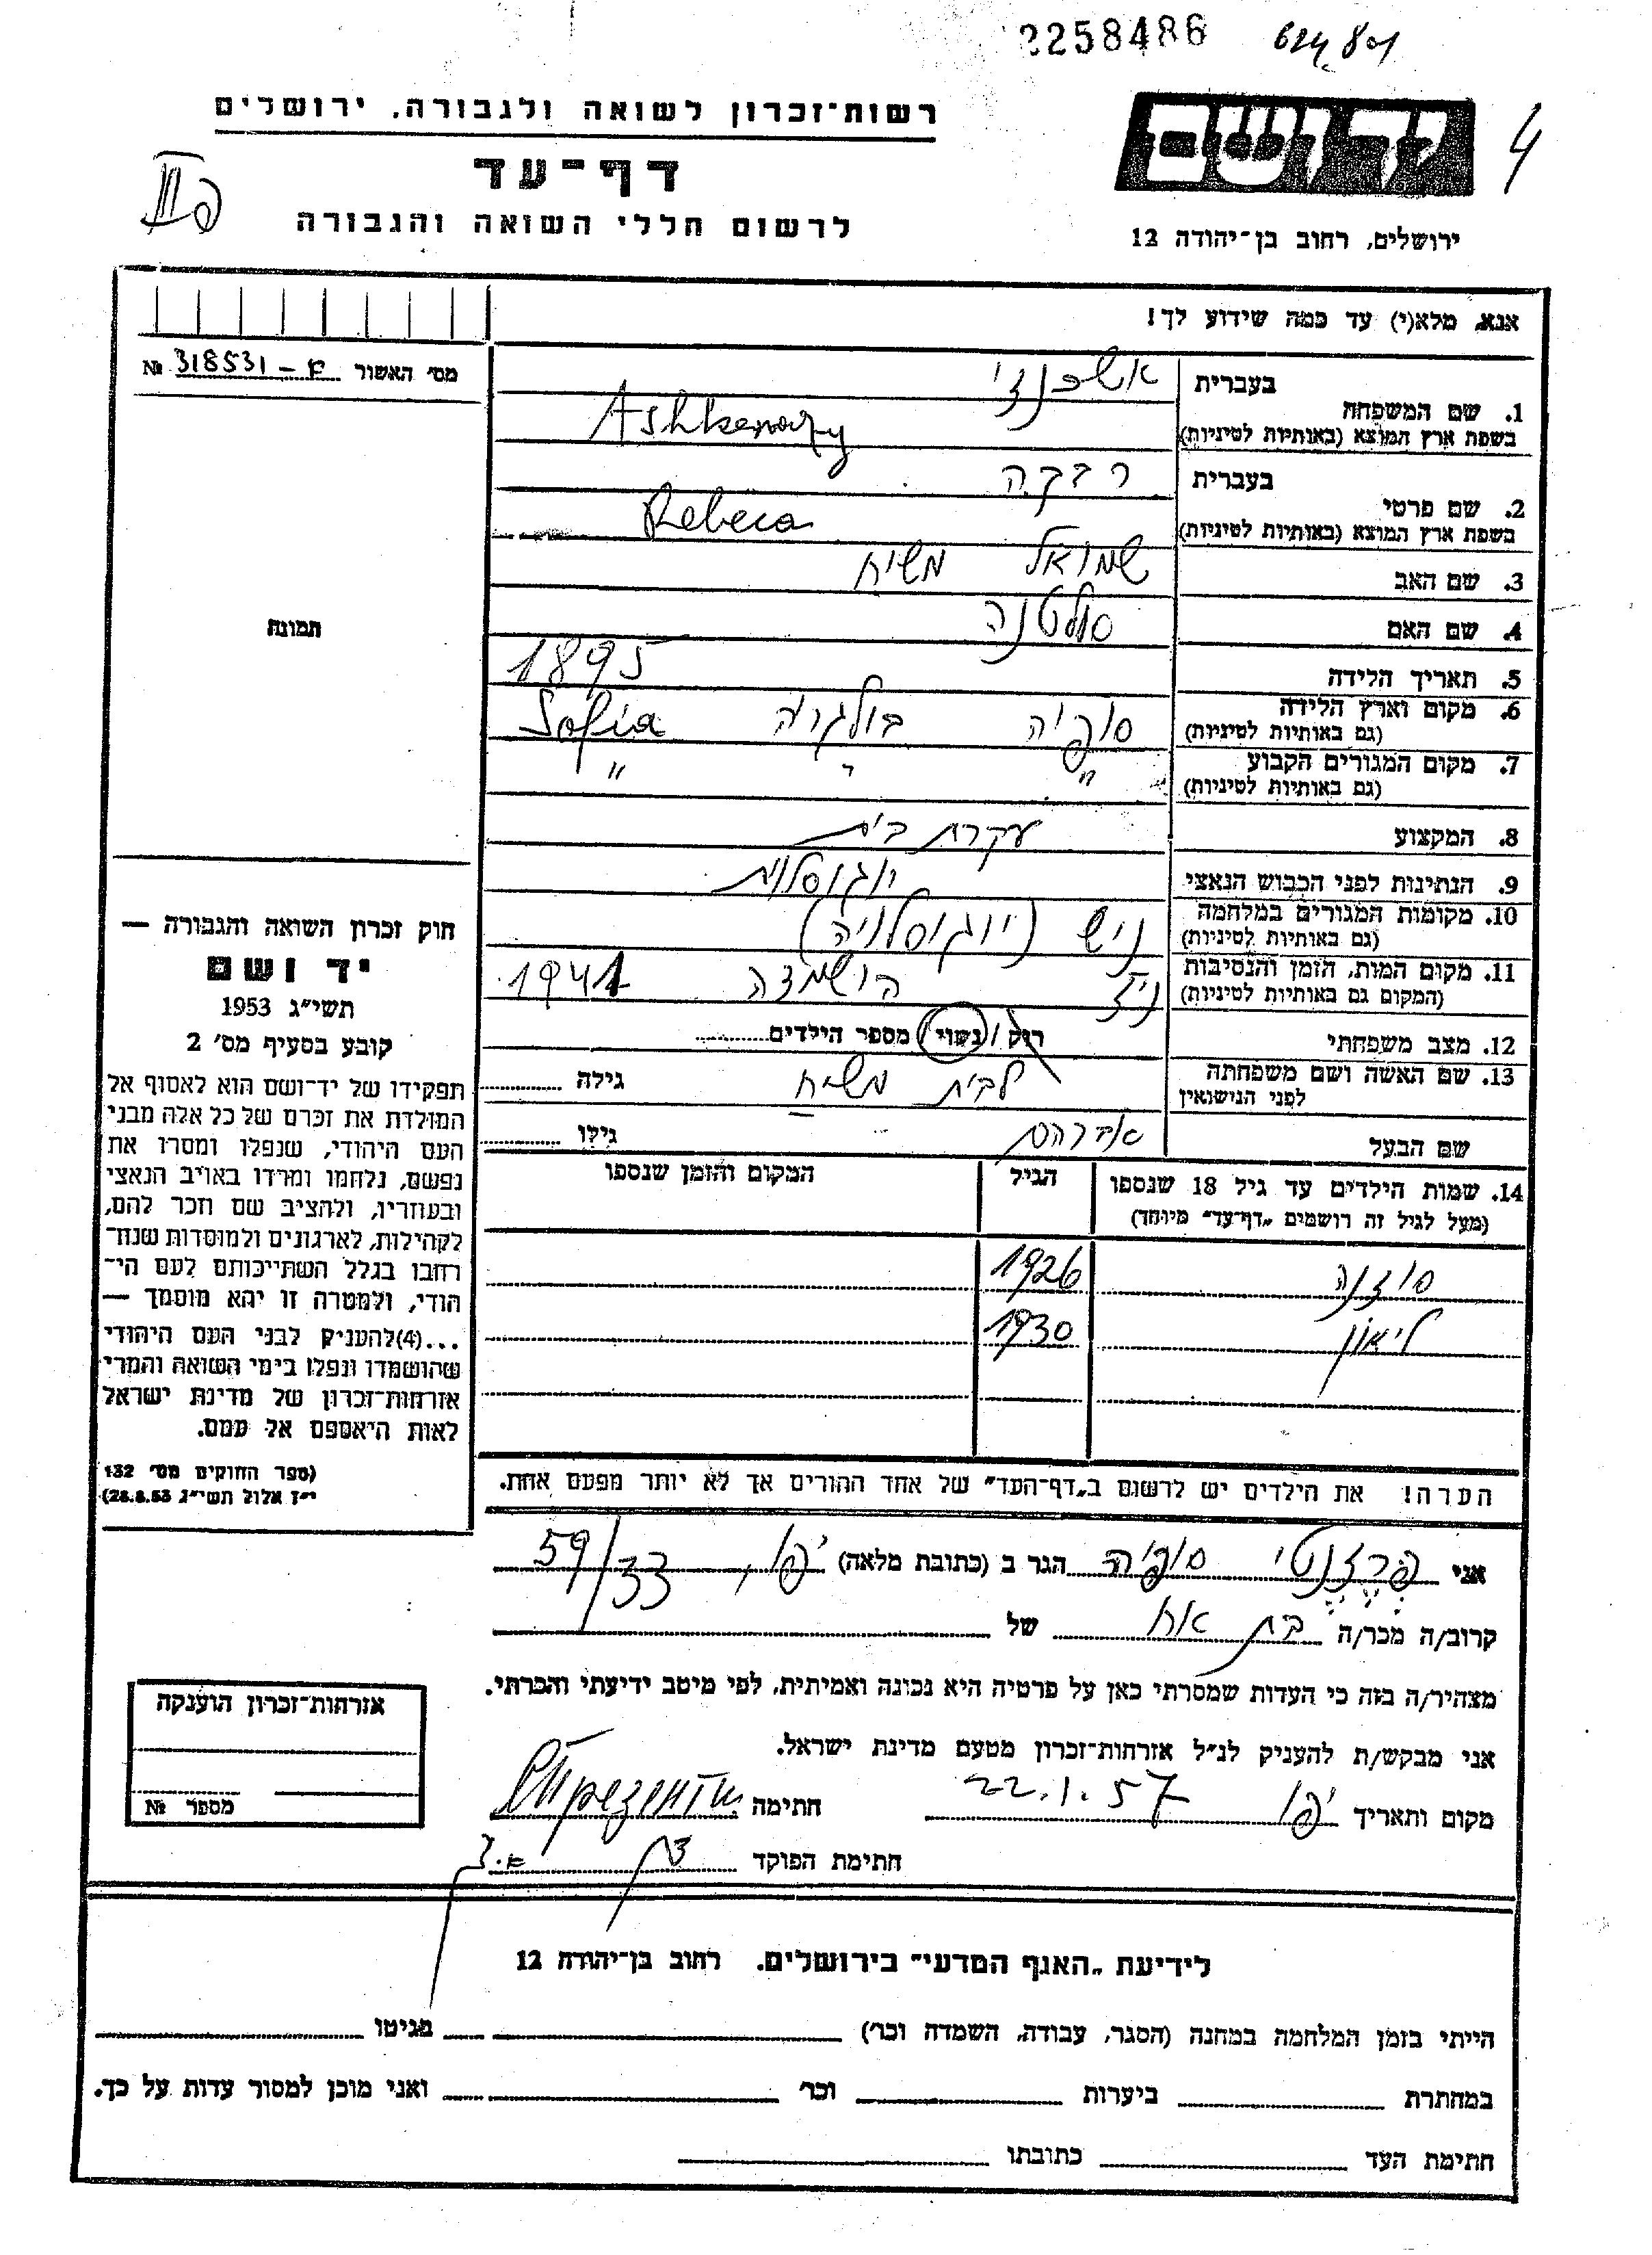 2258486
רשות־זכרון לשואה ולגבורה. ירושלים
יד ושם
4
דף־עד
לרשום חללי השואה והגבורה
ירושלים, רחוב בן־יהודה 12
אנא, מלא(י) עד כמה שידוע לך!
מס׳ האשור 318531 №
בעברית אשכנזי
1. שם המשפחה
בשפת ארץ המוצא (באותיות לטיניות) Ashkenazy
בעברית רבקה
2. שם פרטי
בשפת ארץ המוצא (באותיות לטיניות) Rebeca
3. שם האב שמואל משיח
4. שם האם סולטנה
5. תאריך הלידה 1895
6. מקום וארץ הלידה סופיה בולגריה Sofia
(גם באותיות לטיניות)
7. מקום המגורים הקבוע " " "
(גם באותיות לטיניות)
8. המקצוע עקרת בית
9. הנתינות לפני הכבוש הנאצי יוגוסלוית
10. מקומות המגורים במלחמה ניש (יוגוסלויה)
(גם באותיות לטיניות)
11. מקום המות, הזמן והנסיבות הושמדה 1941
(המקום גם באותיות לטיניות)
12. מצב משפחתי רוק / נשוי / מספר הילדים
13. שם האשה ושם משפחתה לבית משיח גילה
לפני הנישואין
שם הבעל אברהם גילו
14. שמות הילדים עד גיל 18 שנספו הגיל המקום והזמן שנספו
(מעל לגיל זה רושמים „דף־עד" מיוחד)
סוזנה 1926
ליאון 1930
תמונה
חוק זכרון השואה והגבורה —
יד ושם
תשי״ג 1953
קובע בסעיף מס׳ 2
תפקידו של יד־ושם הוא לאסוף אל
המולדת את זכרם של כל אלה מבני
העם היהודי, שנפלו ומסרו את
נפשם, נלחמו ומרדו באויב הנאצי
ובעוזריו, ולהציב שם וזכר להם,
לקהילות, לארגונים ולמוסדות שנח־
רחבו בגלל השתייכותם לעם הי־
הודי, ולמטרה זו יהא מוסמך —
...(4)להעניק לבני העם היהודי
שהושמדו ונפלו בימי השואה והמרי
אזרחות־זכרון של מדינת ישראל
לאות היאספם אל עמם.
(ספר החוקים מס׳ 132
י״ז אלול תשי״ג 28.8.53)
הערה! את הילדים יש לרשום ב„דף־העד" של אחד ההורים אך לא יותר מפעם אחת.
אני פרזנטי סופיה הגר ב (כתובת מלאה) יפו, 59/33
קרוב/ה מכר/ה בת אח של
מצהיר/ה בזה כי העדות שמסרתי כאן על פרטיה היא נכונה ואמיתית, לפי מיטב ידיעתי והכרתי.
אני מבקש/ת להעניק לנ״ל אזרחות־זכרון מטעם מדינת ישראל.
מקום ותאריך יפו 22.1.57 חתימה
חתימת הפוקד
אזרחות־זכרון הוענקה
מספר №
לידיעת „האגף המדעי" בירושלים. רחוב בן־יהודה 12
הייתי בזמן המלחמה במחנה (הסגר, עבודה, השמדה וכו׳) בגיטו
במחתרת ביערות וכו׳ ואני מוכן למסור עדות על כך.
חתימת העד כתובתו